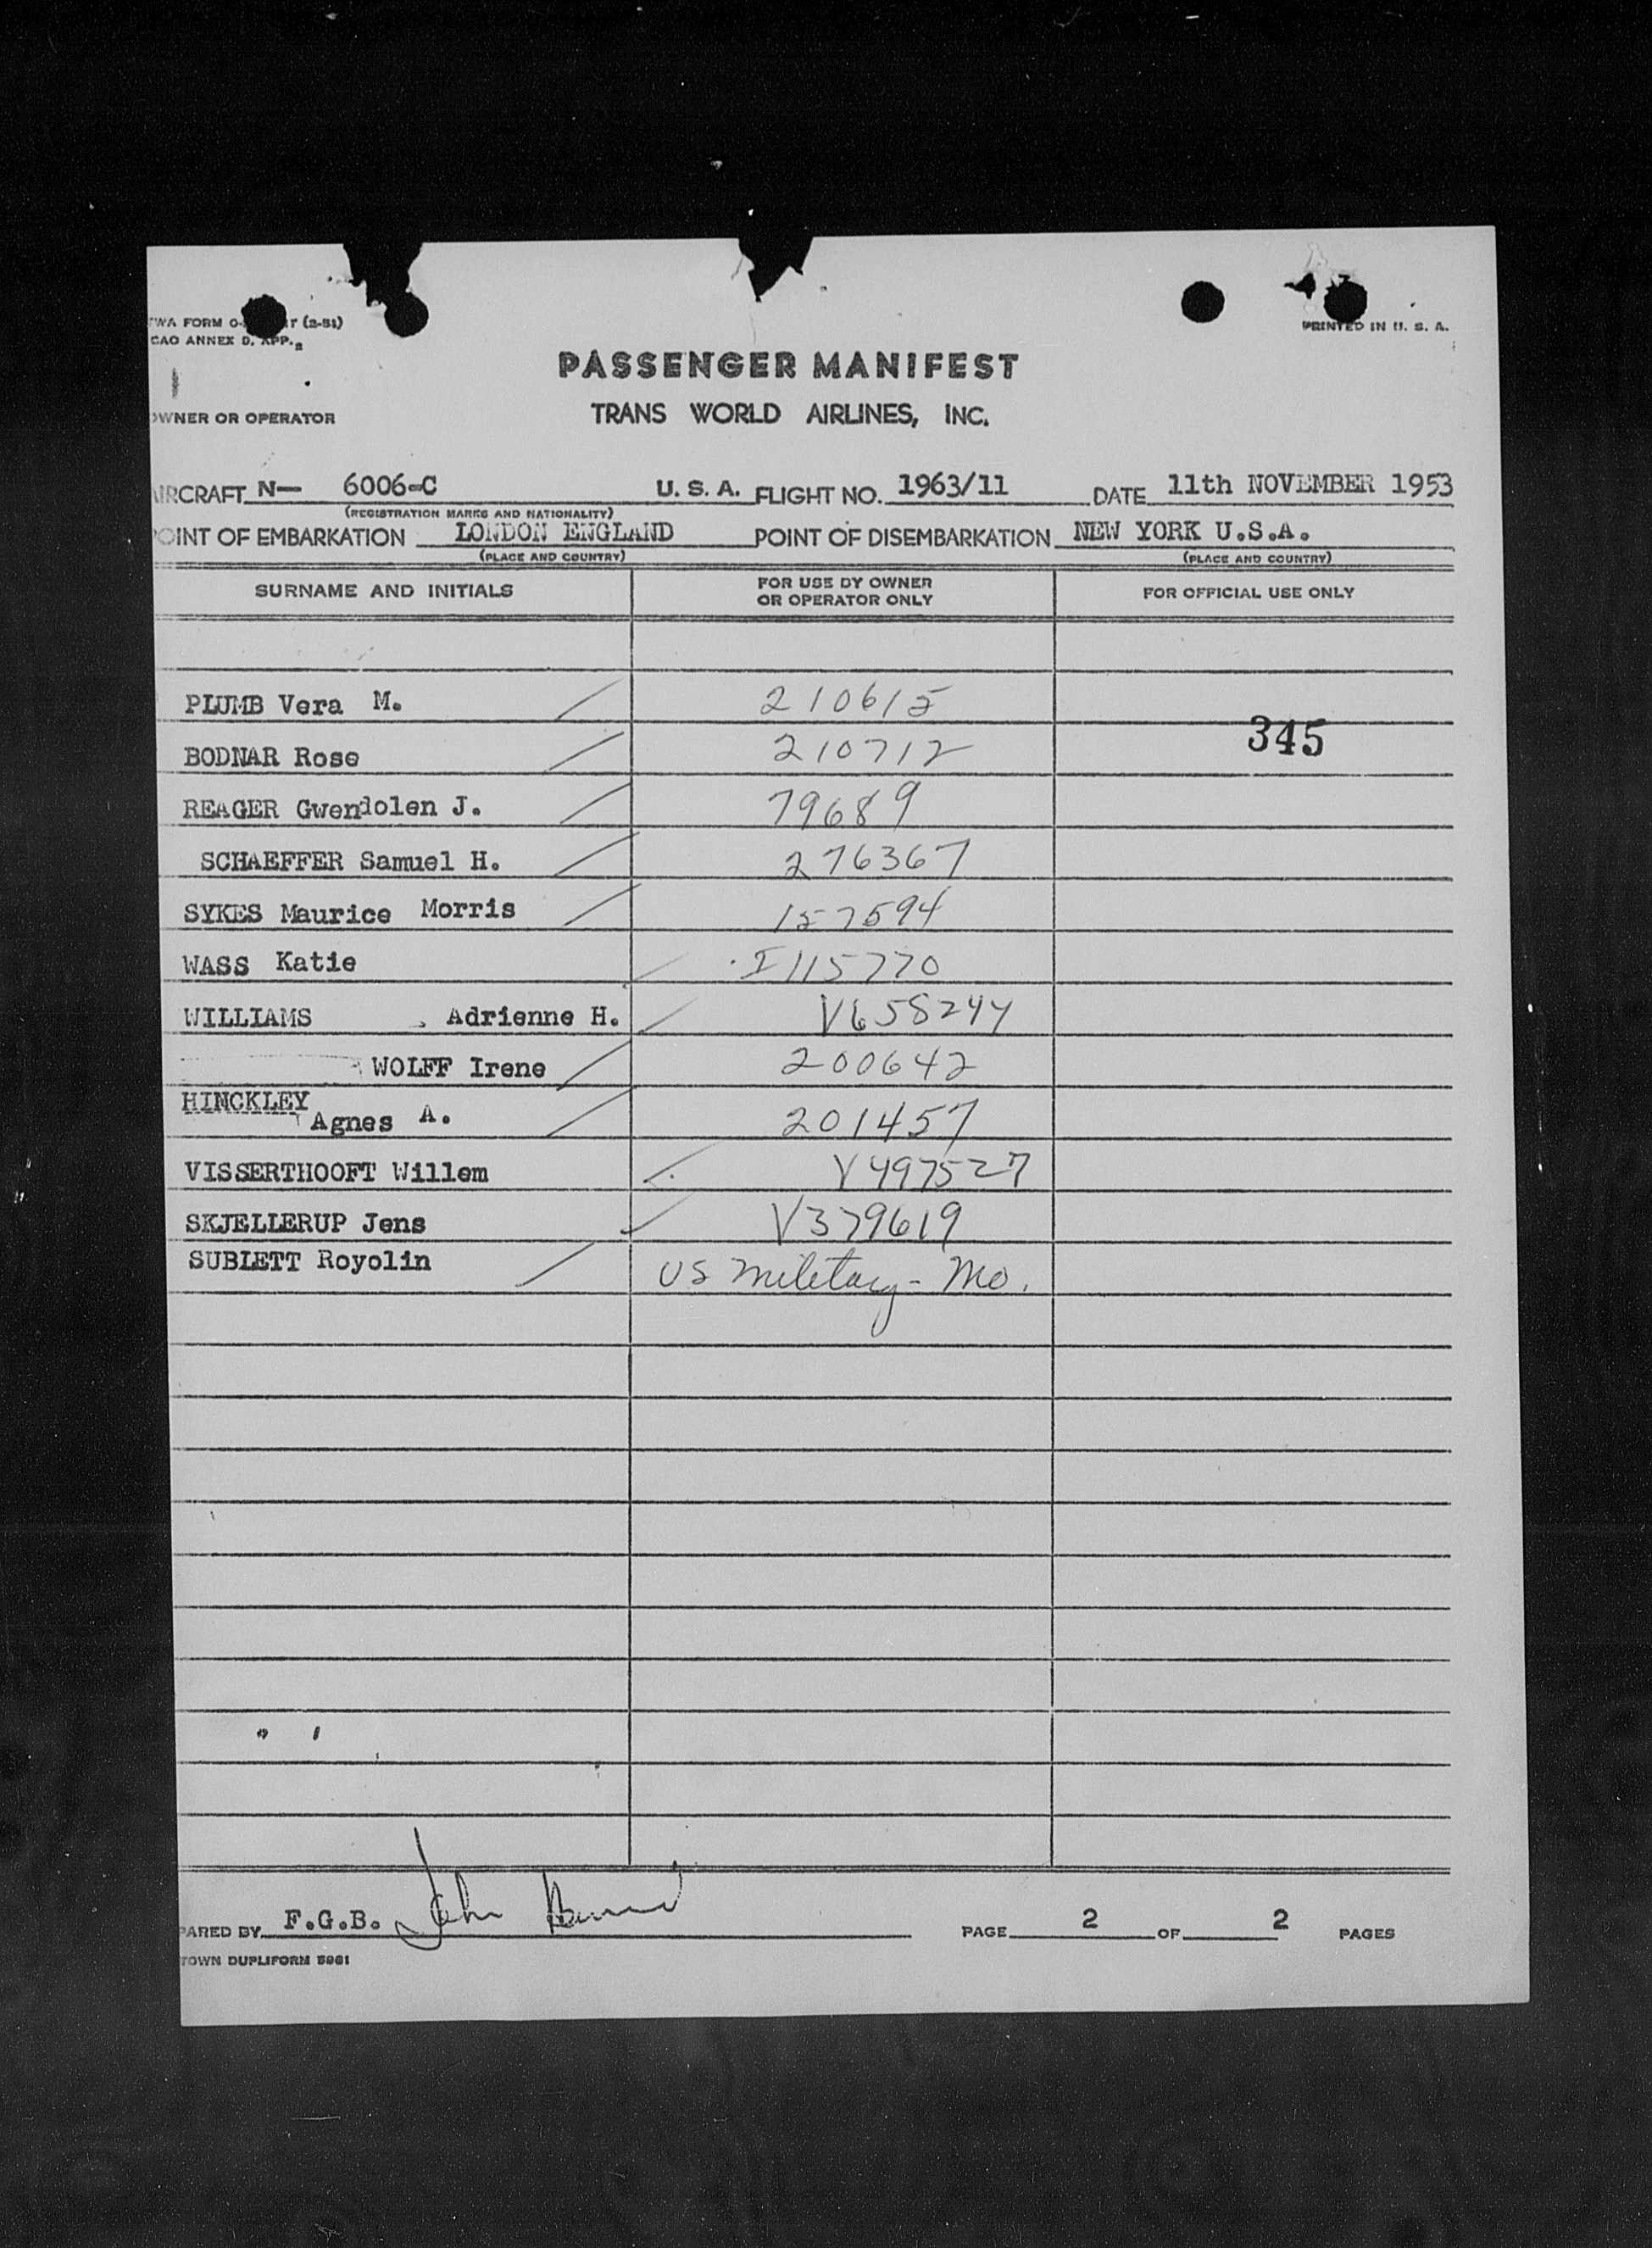 TWA FORM O- T (2-51)
CAO ANNEX D, APP. 2
PRINTED IN U. S. A.
PASSENGER MANIFEST
OWNER OR OPERATOR
TRANS WORLD AIRLINES, INC.
AIRCRAFT N— 6006-C U. S. A. FLIGHT NO. 1963/11 DATE 11th NOVEMBER 1953
(REGISTRATION MARKS AND NATIONALITY)
POINT OF EMBARKATION LONDON ENGLAND POINT OF DISEMBARKATION NEW YORK U.S.A.
(PLACE AND COUNTRY) (PLACE AND COUNTRY)
SURNAME AND INITIALS FOR USE BY OWNER OR OPERATOR ONLY FOR OFFICIAL USE ONLY
PLUMB Vera M. 210615
345
BODNAR Rose 210712
REAGER Gwendolen J. 79689
SCHAEFFER Samuel H. 276367
SYKES Maurice Morris 157594
WASS Katie I115770
WILLIAMS Adrienne H. V658244
WOLFF Irene 200642
HINCKLEY Agnes A. 201457
VISSERTHOOFT Willem V497527
SKJELLERUP Jens V379619
SUBLETT Royolin US military - Mo.
PARED BY F.G.B. John
PAGE 2 OF 2 PAGES
TOWN DUPLIFORM